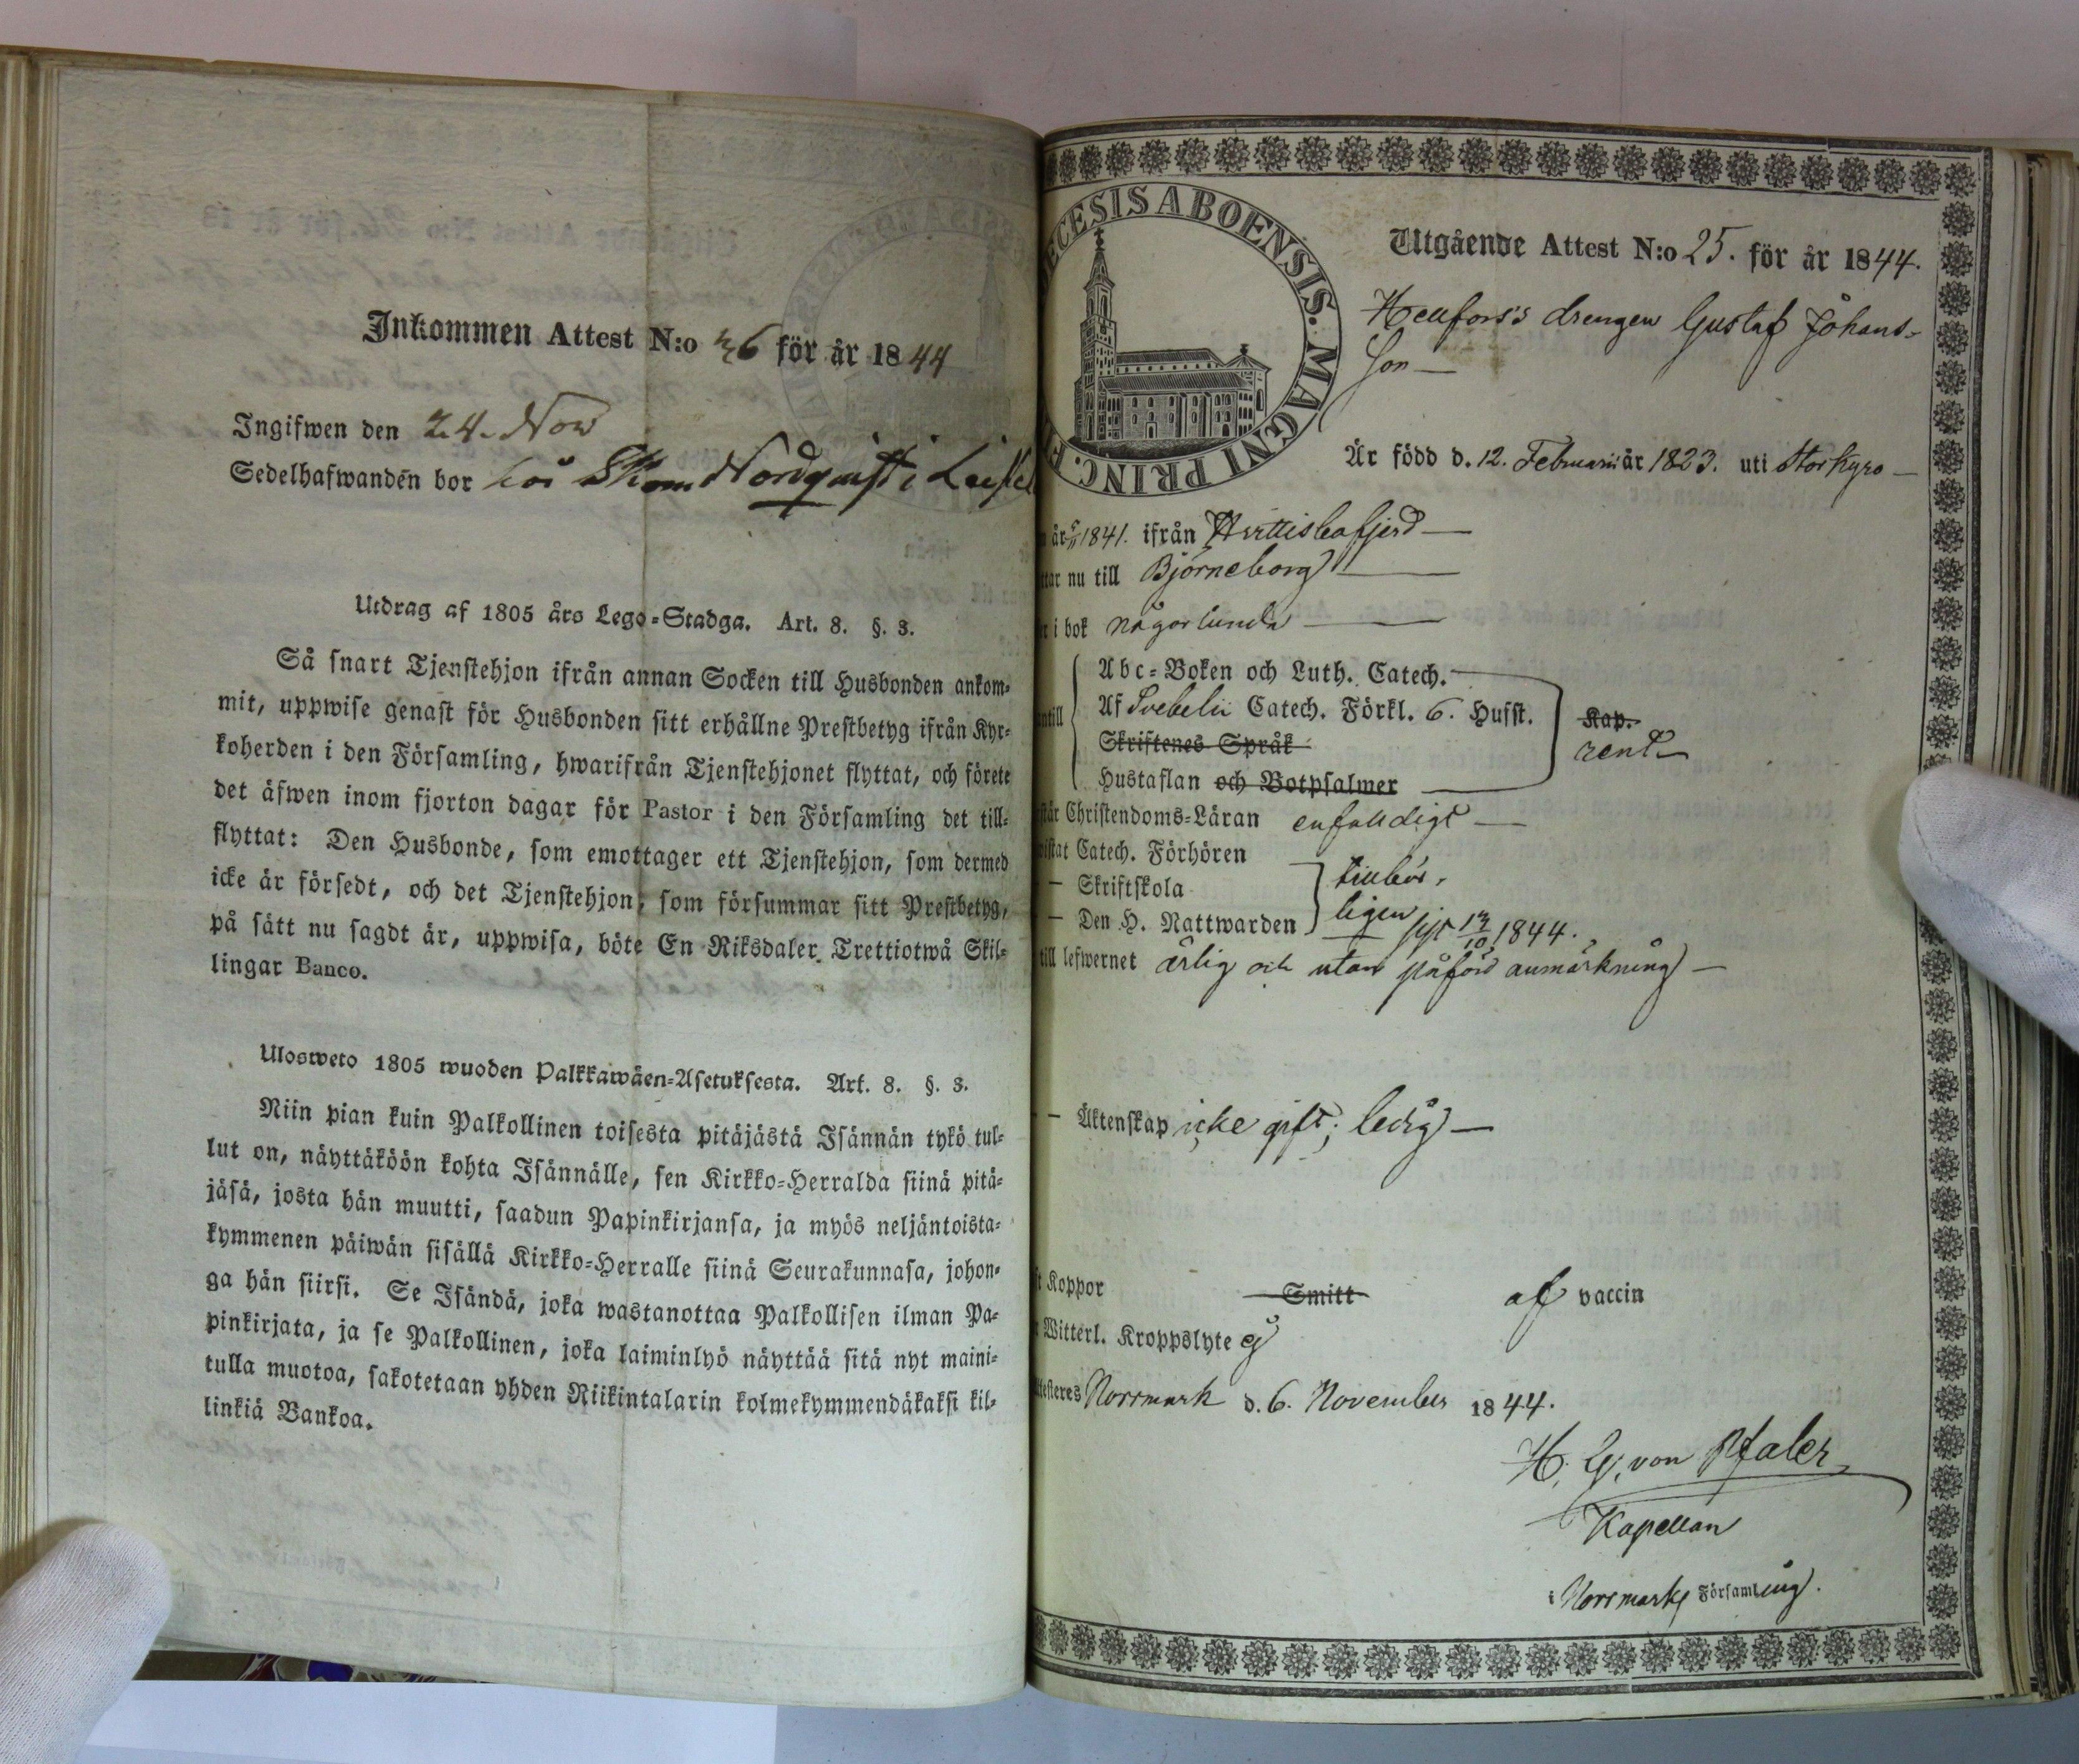 Inkommen Attest N:o 36 för år 1844
Ingifwen den 24. Nov
Sedelhafwanden bor hos Skom Nordqvist i
Utdrag af 1805 års Lego-Stadga. Art. 8. §. 3.
Så snart Tjenstehjon ifrån annan Socken till Husbonden ankom-
mit, uppwise genast för Husbonden sitt erhållne Prestbetyg ifrån Kyr-
koherden i den Församling, hwarifrån Tjenstehjonet flyttat, och förete
det äfwen inom fjorton dagar för Pastor i den Församling det till-
flyttat: Den Husbonde, som emottager ett Tjenstehjon, som dermed
icke är försedt, och det Tjenstehjon, som försummar sitt Prestbetyg,
på sätt nu sagdt är, uppwisa, böte En Riksdaler Trettiotwå Skil-
lingar Banco.
Ulosweto 1805 wuoden Palkkawäen-Asetuksesta. Art. 8. §. 3.
Niin pian kuin Palkollinen toisesta pitäjästä Isännän tykö tul-
lut on, näyttäköön kohta Isännälle, sen Kirkko-Herralda siinä pitä-
jäsä, josta hän muutti, saadun Papinkirjansa, ja myös neljäntoista-
kymmenen päiwän sisällä Kirkko-Herralle siinä Seurakunnasa, johon-
ga hän siirsi. Se Isändä, joka wastanottaa Palkollisen ilman Pa-
pinkirjata, ja se Palkollinen, joka laiminlyö näyttää sitä nyt maini-
tulla muotoa, sakotetaan yhden Riikintalarin kolmekymmendäkaksi kil-
linkiä Bankoa.
ECESIS ABOENSIS. MAGNI PRINC. F
Utgående Attest N:o 25. för år 1844.
drengen Gustaf Johans-
son
Är född d. 12. Februarii år 1823. uti Storkyro
år 1841. ifrån
nu till Björneborg
i bok någorlunda
Abc-Boken och Luth. Catech.
Af Svebelii Catech. Förkl. 6. Husst.
Skriftenes Språk
Hustaflan och Botpsalmer
Kap.
rent
Christendoms-Läran enfalldigt
Catech. Förhören
– Skriftskola
– Den H. Nattwarden
tillbör-
ligen sist 13/10 1844.
till lefwernet ärlig och utan påförd anmärkning
– Äktenskap icke gift; ledig
Koppor Smitt af vaccin
Witterl. Kroppslyte ej
Norrmark d. 6. November 1844.
H. G. von Pfaler
Kapellan
i Norrmarks Församling.